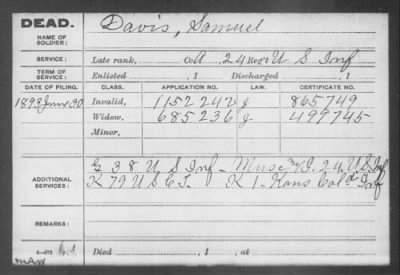 DEAD.
NAME OF SOLDIER:
Davis, Samuel
SERVICE:
Late rank, Co A 24 Reg't U S Inf
TERM OF SERVICE:
Enlisted , 1 Discharged , 1
DATE OF FILING. CLASS. APPLICATION NO. LAW. CERTIFICATE NO.
1893 June 30 Invalid, 1152242 J 865749
Widow, 685236 J 499745
Minor,
ADDITIONAL SERVICES:
G 38 U S Inf - Musc 24 U.S. Inf
K 79 U S C T. K 1- Kans Col'd Inf
REMARKS:
Died , 1 , at